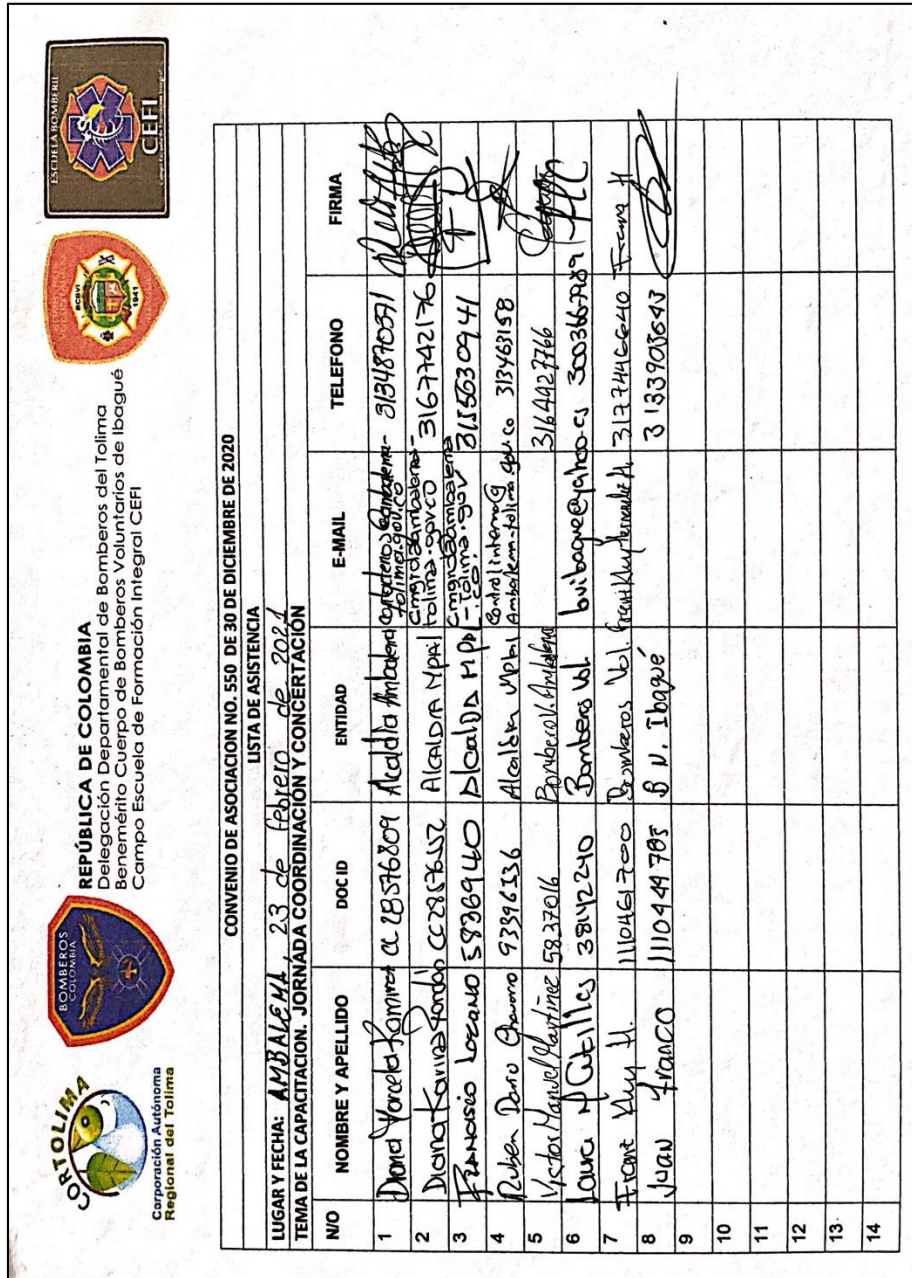 CORTOLIMA
Corporación Autónoma
Regional del Tolima
BOMBEROS
COLOMBIA
REPÚBLICA DE COLOMBIA
Delegación Departamental de Bomberos del Tolima
Benemérito Cuerpo de Bomberos Voluntarios de Ibagué
Campo Escuela de Formación Integral CEFI
BCBVI
1941
ESCUELA BOMBERIL
CEFI
CONVENIO DE ASOCIACION NO. 550 DE 30 DE DICIEMBRE DE 2020
LISTA DE ASISTENCIA
LUGAR Y FECHA: AMBALEMA, 23 de febrero de 2021
TEMA DE LA CAPACITACION. JORNADA COORDINACION Y CONCERTACIÓN
N/O NOMBRE Y APELLIDO DOC ID ENTIDAD E-MAIL TELEFONO FIRMA
1 Diana Marcela Ramirez CC 28576809 Alcaldia Ambalema 3134870571
2 Diana Karina Rondon CC 28576 Alcaldia Mpal 3167742176
3 Francisco Lozano 5836940 Alcaldia Mpal 3155630941
4 Ruben Dario Chamorro 9396336 Alcaldia Mpal controlinterno@ambalema-tolima.gov.co 313463158
5 Victor Manuel Martinez 5837016 Bomberos V. Ambalema 3164427766
6 Laura M Cubillos 38142240 Bomberos Vol. bvibague@yahoo.es 3003667289
7 Frank Kluy H. 1110461700 Bomberos Vol. 3177416640 Frank H
8 Juan Franco 1110444785 B.V. Ibagué
9
10
11
12
13
14